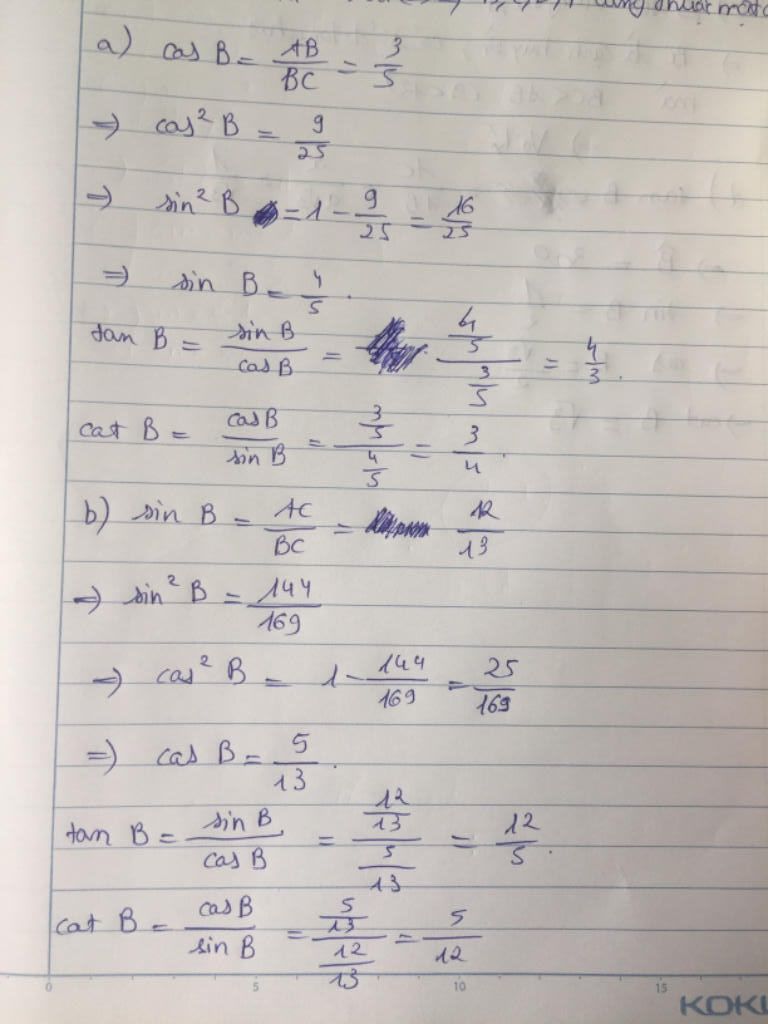 cùng thuộc một
a) cos B = AB/BC = 3/5
=> cos² B = 9/25
=> sin² B = 1 - 9/25 = 16/25
=> sin B = 4/5.
tan B = sin B/cos B = (4/5)/(3/5) = 4/3.
cot B = cos B/sin B = (3/5)/(4/5) = 3/4.
b) sin B = AC/BC = 12/13
=> sin² B = 144/169
=> cos² B = 1 - 144/169 = 25/169
=> cos B = 5/13.
tan B = sin B/cos B = (12/13)/(5/13) = 12/5.
cot B = cos B/sin B = (5/13)/(12/13) = 5/12
0 5 10 15
KOKU